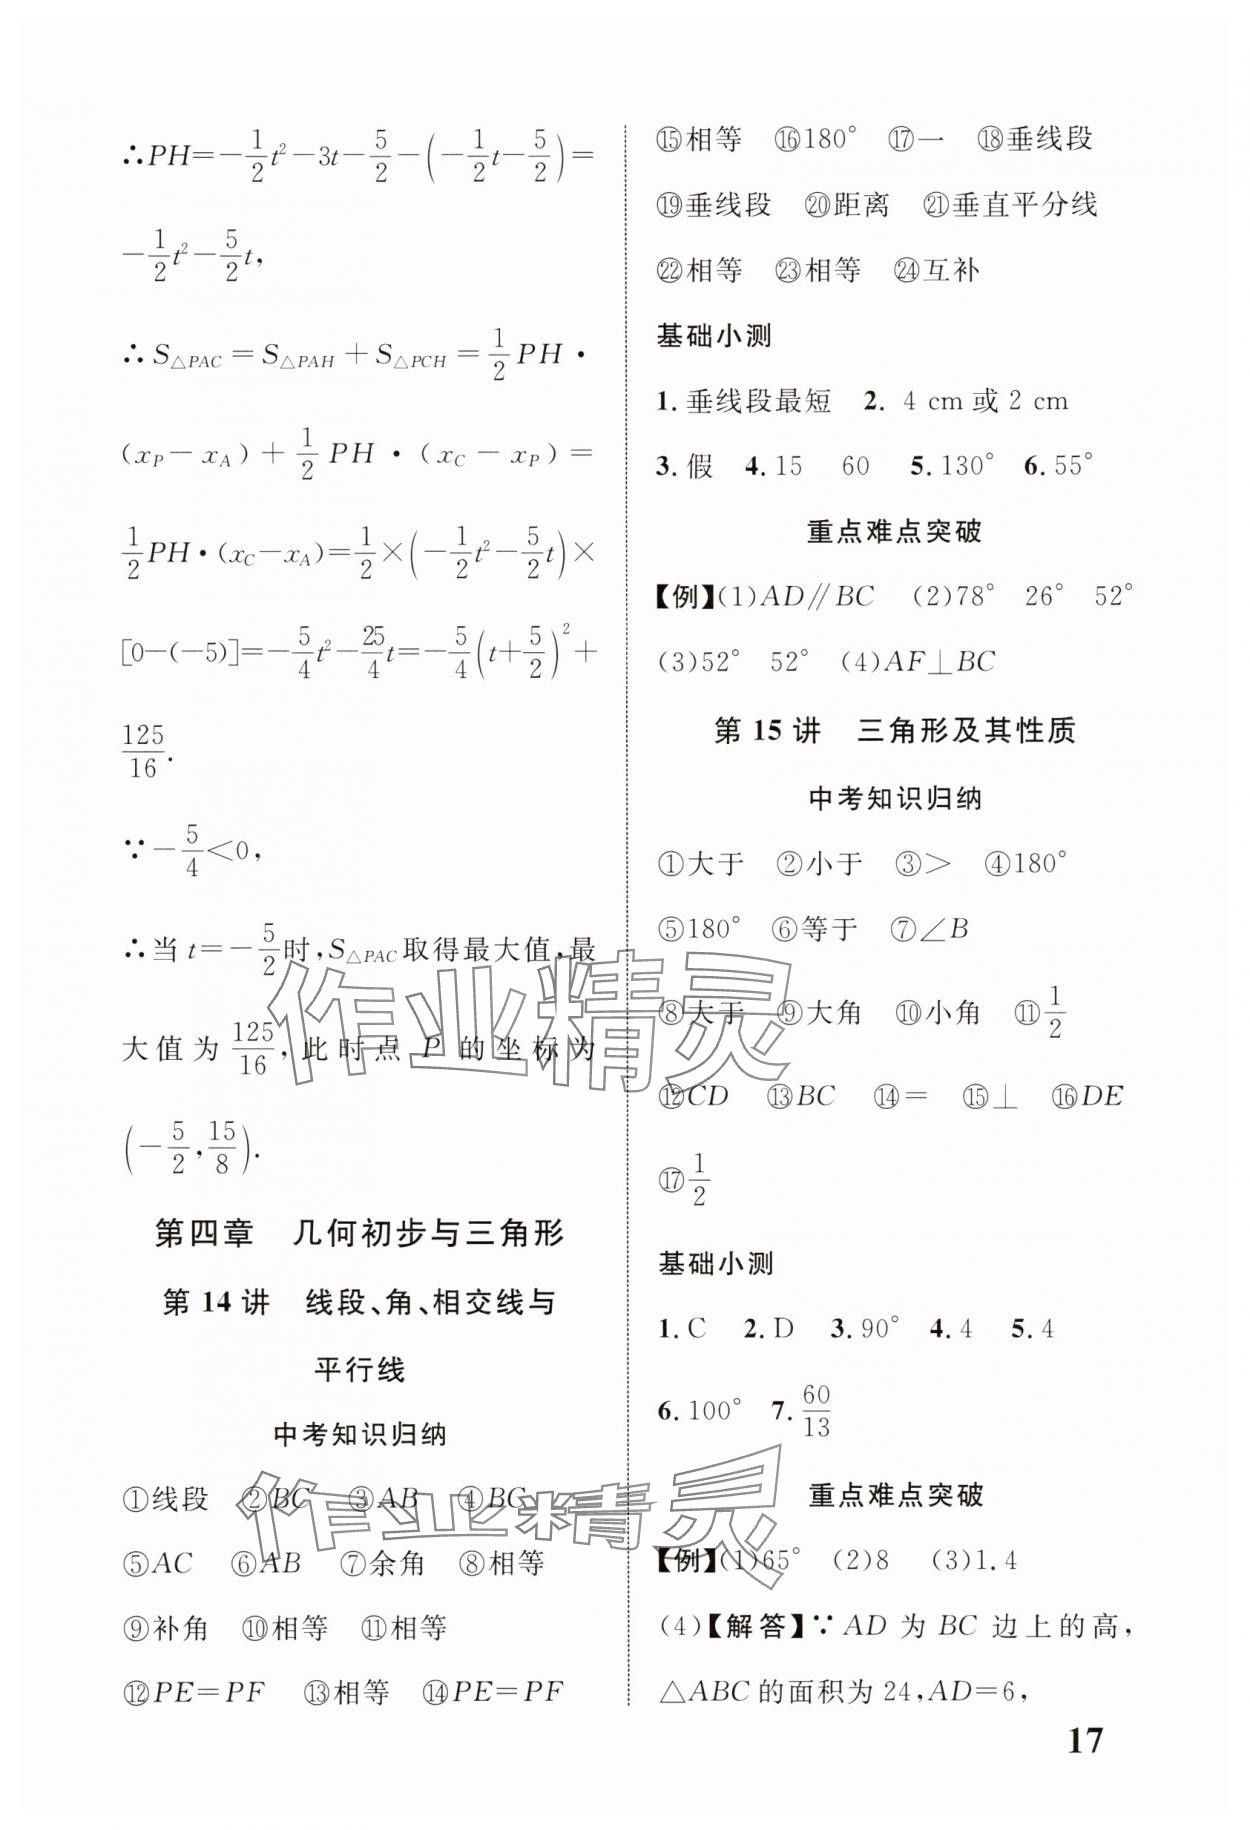 ∴PH=-1/2t²-3t-5/2-(-1/2t-5/2)=
-1/2t²-5/2t,
∴S△PAC=S△PAH+S△PCH=1/2PH·
(xP-xA)+1/2PH·(xC-xP)=
1/2PH·(xC-xA)=1/2×(-1/2t²-5/2t)×
[0-(-5)]=-5/4t²-25/4t=-5/4(t+5/2)²+
125/16.
∵-5/4<0,
∴当t=-5/2时,S△PAC取得最大值,最
大值为125/16,此时点P的坐标为
(-5/2,15/8).
第四章 几何初步与三角形
第14讲 线段、角、相交线与
平行线
中考知识归纳
①线段 ②BC ③AB ④BC
⑤AC ⑥AB ⑦余角 ⑧相等
⑨补角 ⑩相等 ⑪相等
⑫PE=PF ⑬相等 ⑭PE=PF
⑮相等 ⑯180° ⑰一 ⑱垂线段
⑲垂线段 ⑳距离 ㉑垂直平分线
㉒相等 ㉓相等 ㉔互补
基础小测
1.垂线段最短 2. 4 cm或2 cm
3.假 4.15 60 5.130° 6.55°
重点难点突破
【例】(1)AD∥BC (2)78° 26° 52°
(3)52° 52° (4)AF⊥BC
第15讲 三角形及其性质
中考知识归纳
①大于 ②小于 ③> ④180°
⑤180° ⑥等于 ⑦∠B
⑧大于 ⑨大角 ⑩小角 ⑪1/2
⑫CD ⑬BC ⑭= ⑮⊥ ⑯DE
⑰1/2
基础小测
1.C 2.D 3.90° 4.4 5.4
6.100° 7.60/13
重点难点突破
【例】(1)65° (2)8 (3)1.4
(4)【解答】∵AD为BC边上的高,
△ABC的面积为24,AD=6,
17
作业精灵
作业精灵